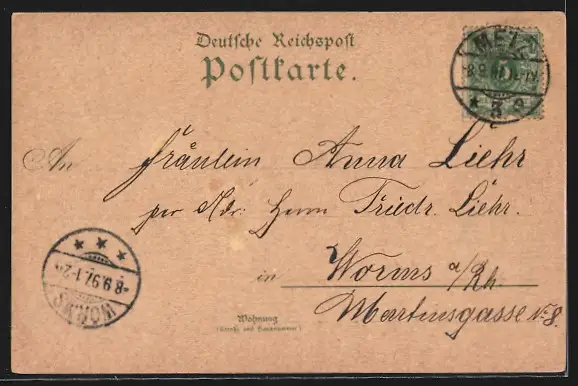 Deutsche Reichspost
Postkarte.
METZ
8.9.97
* 3 c
An Fräulein Anna Liehr
per Adr: Herrn Friedr. Liehr.
in Worms a/Rh.
Martinsgasse No 8.
Wohnung
(Straße und Hausnummer)
WORMS
8.9.97.1-2N.